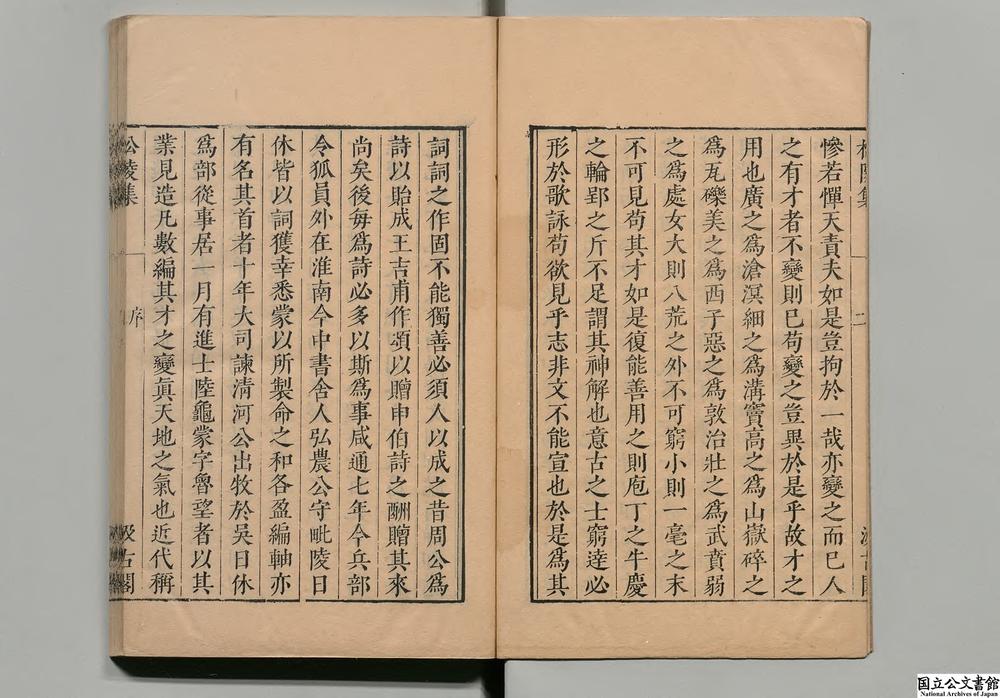 慘若憚天責夫如是豈拘於一哉亦變之而已人
之有才者不變則已苟變之豈異於是乎故才之
用也廣之爲滄溟細之爲溝竇高之爲山嶽碎之
爲瓦礫美之爲西子惡之爲敦洽壯之爲武賁弱
之爲處女大則八荒之外不可窮小則一毫之末
不可見苟其才如是復能善用之則庖丁之牛慶
之輪郢之斤不足謂其神解也意古之士窮達必
形於歌詠苟欲見乎志非文不能宣也於是爲其
詞詞之作固不能獨善必須人以成之昔周公爲
詩以貽成王吉甫作頌以贈申伯詩之酬贈其來
尚矣後每爲詩必多以斯爲事咸通七年今兵部
令狐員外在淮南今中書舍人弘農公守毗陵日
休皆以詞獲幸悉蒙以所製命之和各盈編軸亦
有名其首者十年大司諫清河公出牧於吳日休
爲部從事居一月有進士陸龜蒙字魯望者以其
業見造凡數編其才之變真天地之氣也近代稱
松陵集 序 汲古閣
国立公文書館
National Archives of Japan